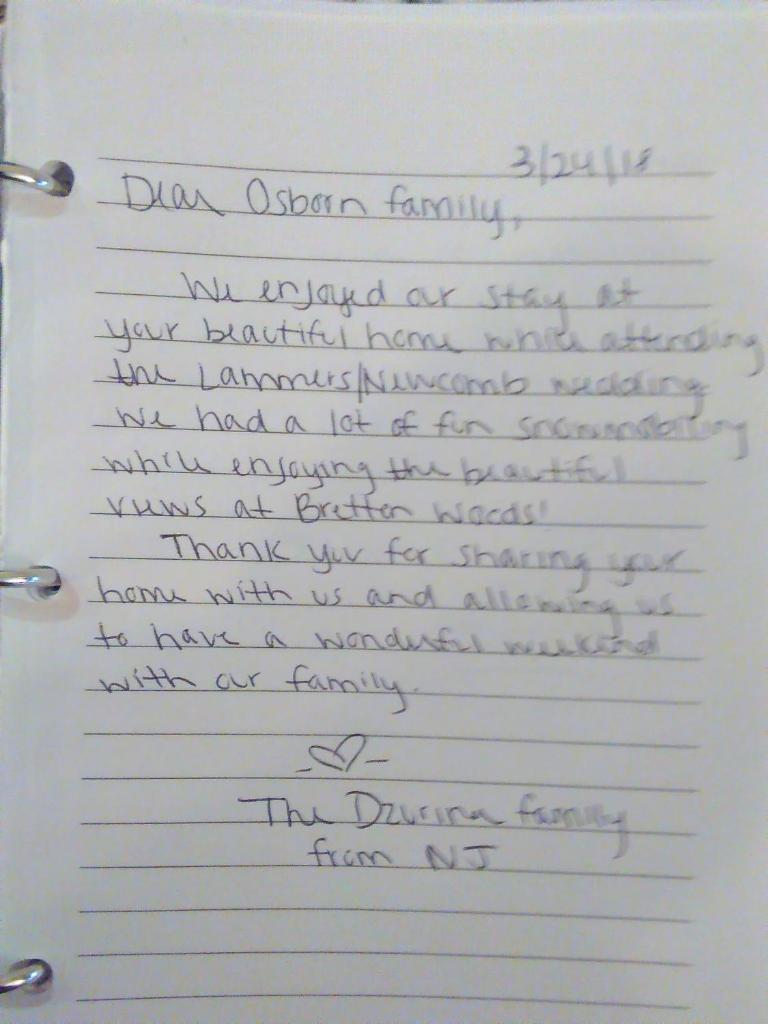 3/24/18
Dear Osborn family,
We enjoyed our stay at
your beautiful home while attending
the Lammers/Newcomb wedding.
We had a lot of fun snowmobiling
while enjoying the beautiful
views at Bretton Woods!
Thank you for sharing your
home with us and allowing us
to have a wonderful weekend
with our family.
The Dzurina family
from NJ